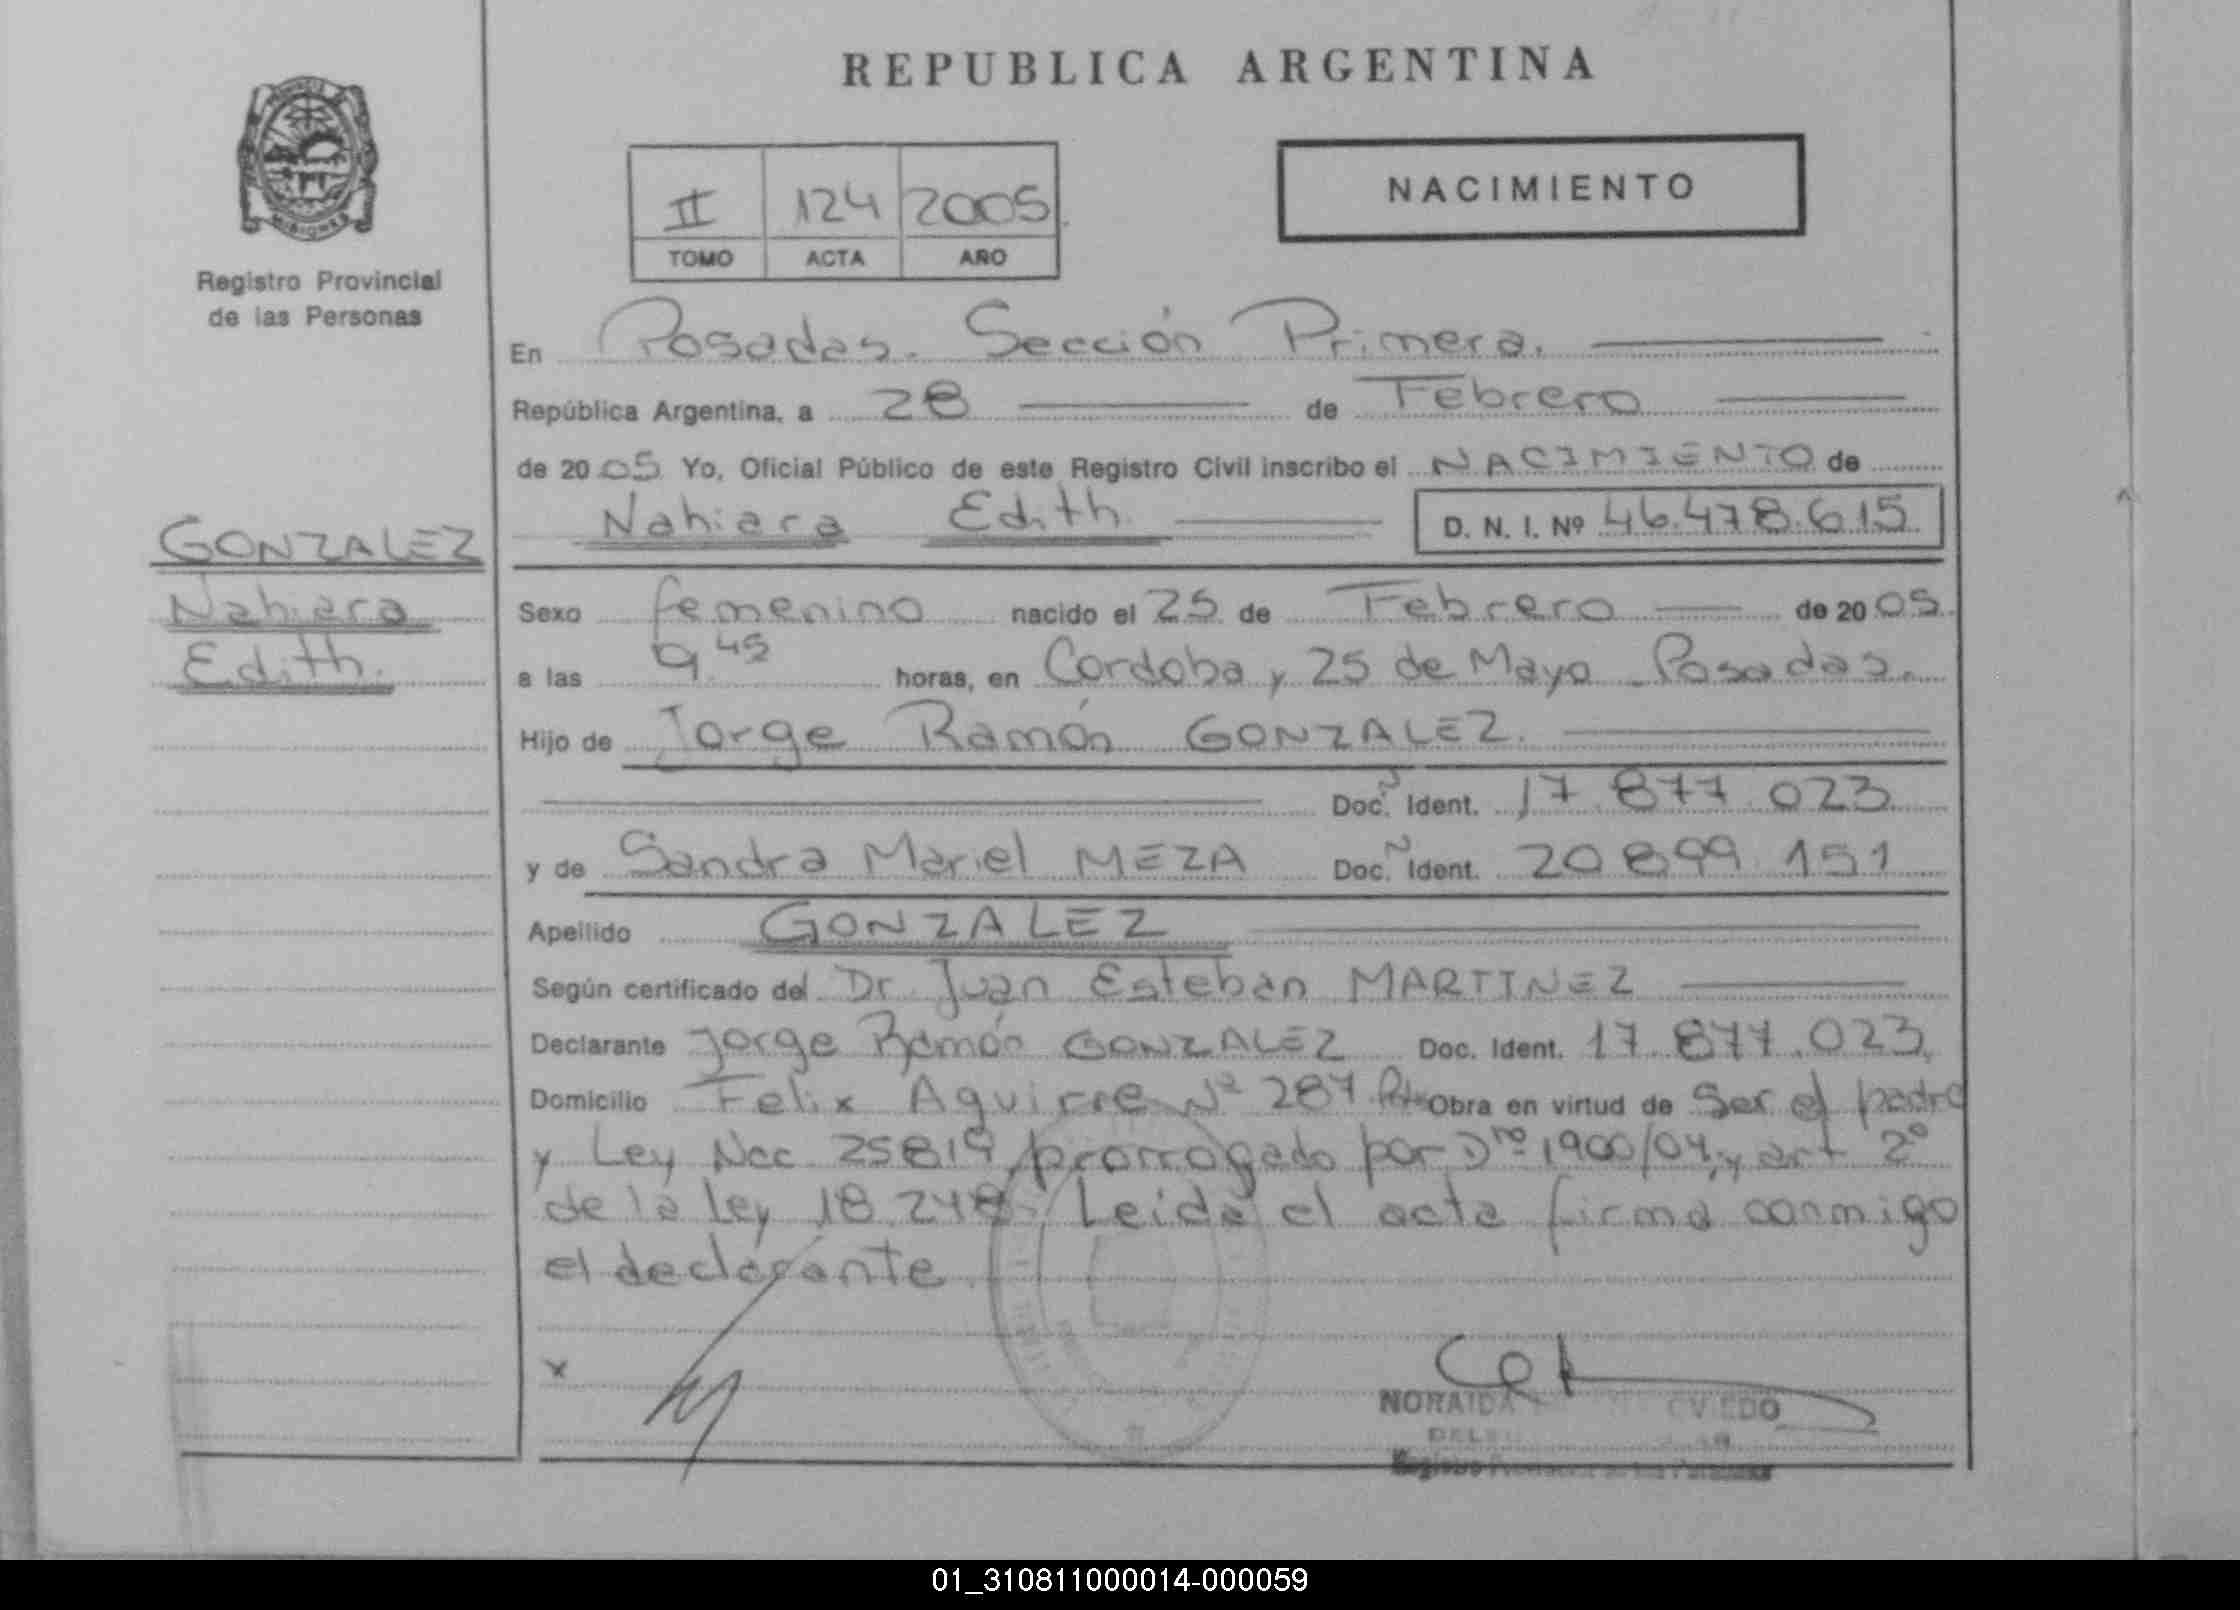 REPUBLICA ARGENTINA
MISIONES
Registro Provincial
de las Personas
II 124 2005
TOMO ACTA AÑO
NACIMIENTO
En Posadas. Sección Primera.
República Argentina, a 28 de Febrero
de 2005 Yo, Oficial Público de este Registro Civil inscribo el NACIMIENTO de
Nahiara Edith D. N. I. Nº 46.478.615
GONZALEZ
Nahiara
Edith.
Sexo femenino nacido el 25 de Febrero de 2005.
a las 9.45 horas, en Cordoba y 25 de Mayo - Posadas.
Hijo de Jorge Ramón GONZALEZ.
Doc. Ident. 17.877.023
y de Sandra Mariel MEZA Doc. Ident. 20 899 151
Apellido GONZALEZ
Según certificado del Dr. Juan Esteban MARTINEZ
Declarante Jorge Ramón GONZALEZ Doc. Ident. 17.877.023.
Domicilio Felix Aguirre Nº 287 Obra en virtud de Ser el padre
y Ley Nac. 25819, prorrogado por 1900/04, y art 2º
de la Ley 18.248. Leida el acta firma conmigo
el declarante.
x
NORAIDA OVIEDO
Registro
01_310811000014-000059